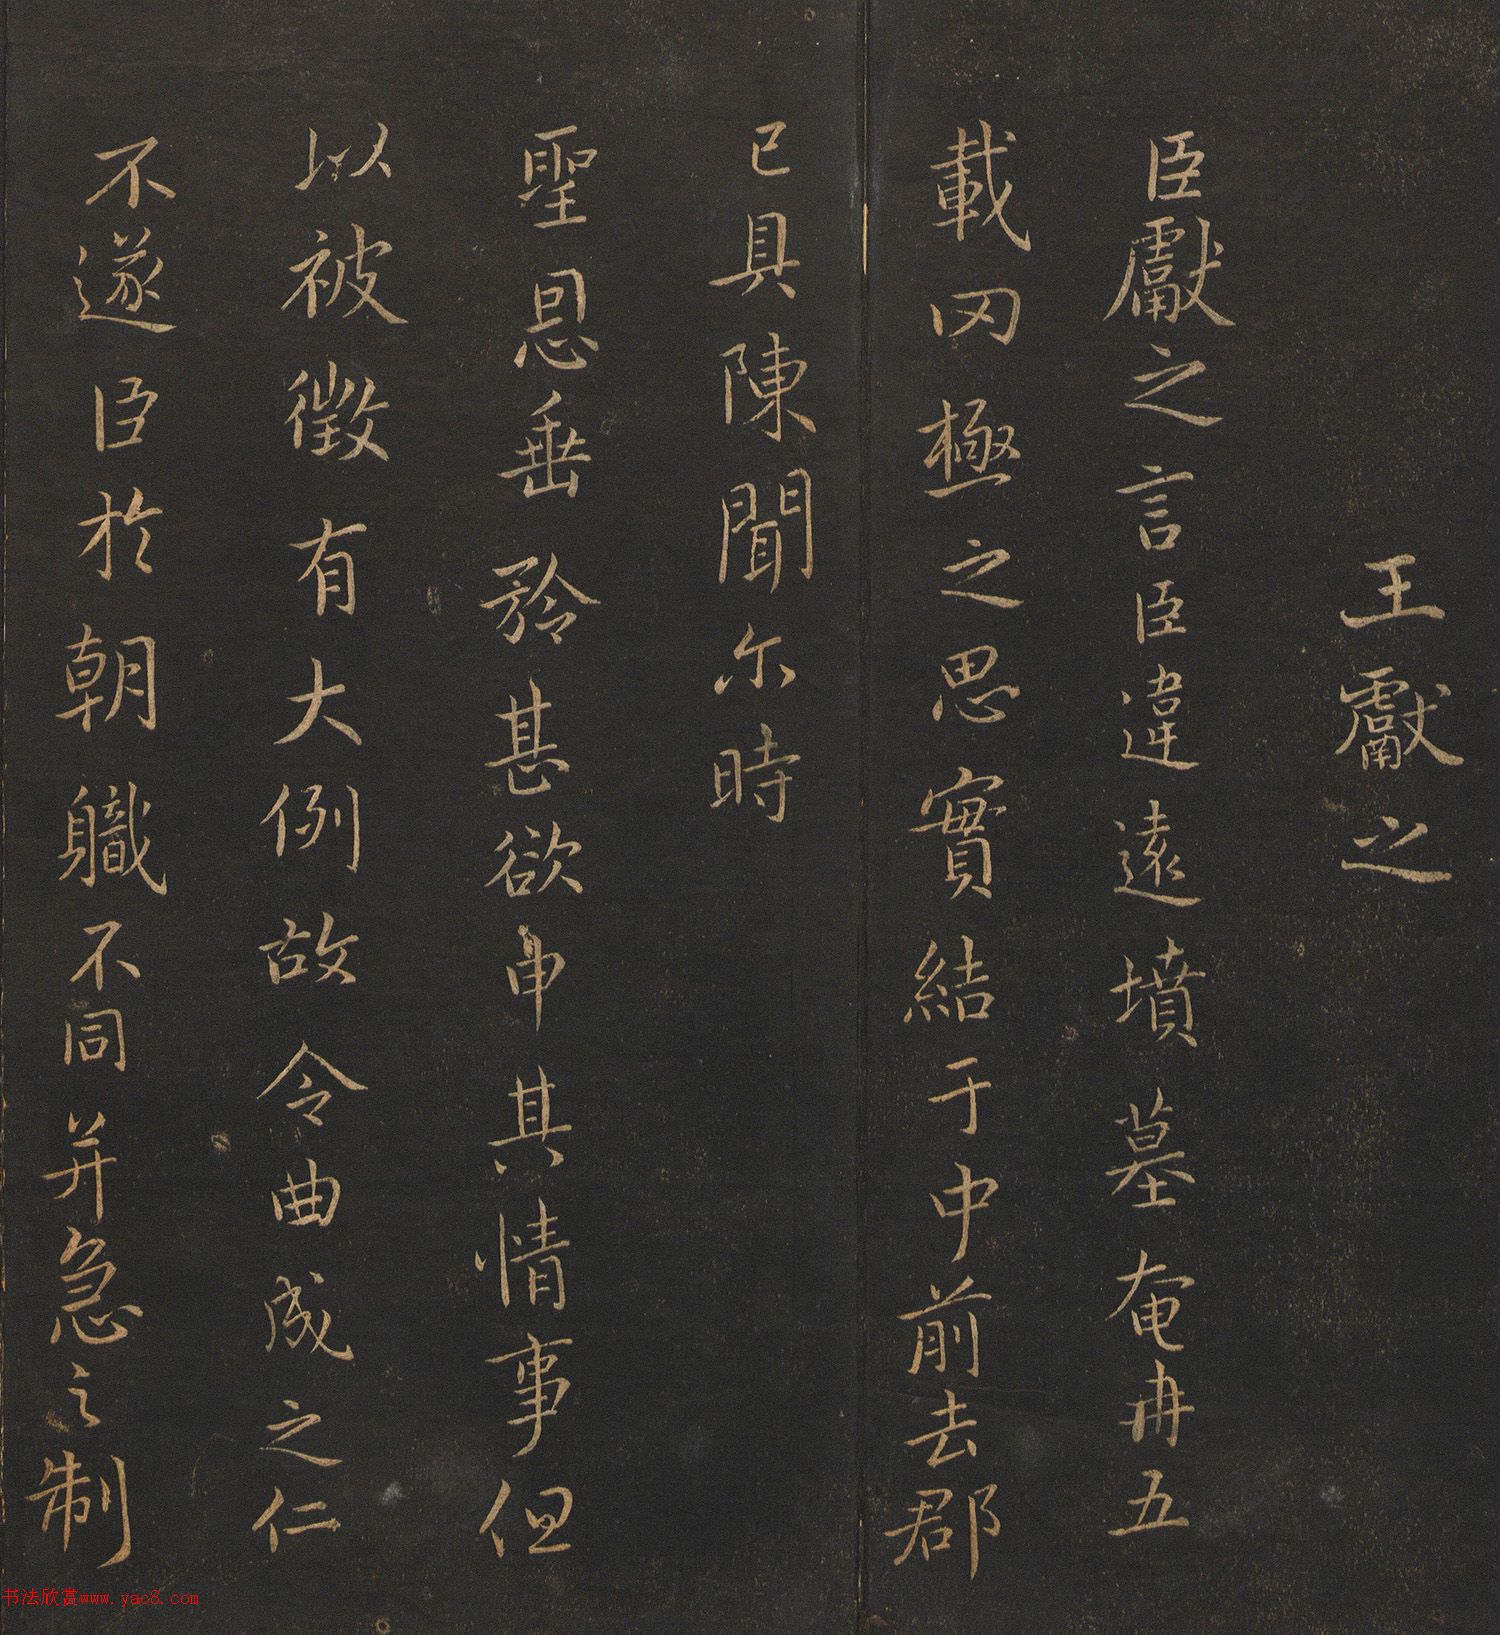 王獻之
臣獻之言臣違遠墳墓奄冉五
載罔極之思實結于中前去郡
已具陳聞尒時
聖恩垂矜甚欲申其情事但
以被徵有大例故令曲成之仁
不遂臣於朝職不同并急之制
书法欣赏www.yac8.com